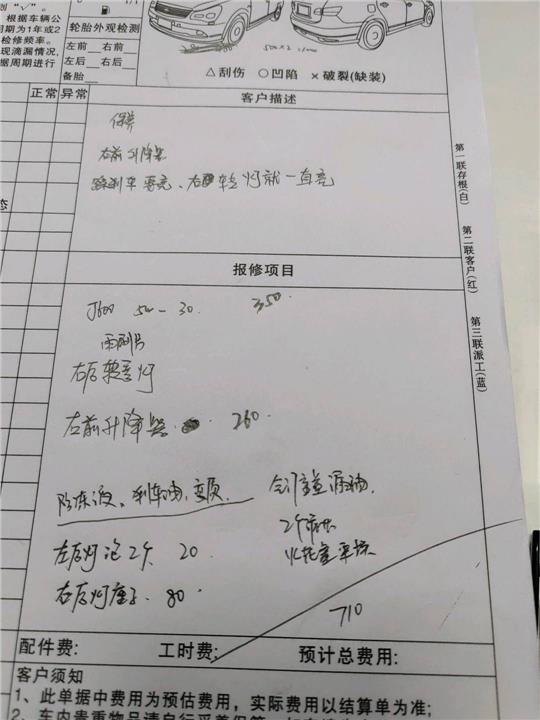 "√"。
根据车辆公
周期为1年或2
检修频率。
现滴漏情况,
据周期进行
轮胎外观检测
左前 右前
左后 右后
备胎
△刮伤 ○凹陷 ×破裂(缺装)
正常 异常
客户描述
保养
右前升降器
踩刹车
灯就一直亮
第一联存根(白)
第二联客户(红)
第三联派工(蓝)
报修项目
5w-30. 350.
雨刮片
右后转向灯
左前升降器. 260.
防冻液、刹车油、变质.
漏油.
2个
火花塞
左后灯泡2个. 20
右后灯座子. 80
710
配件费: 工时费: 预计总费用:
客户须知
1、此单据中费用为预估费用,实际费用以结算单为准;
2、车内贵重物品请自行妥善保管